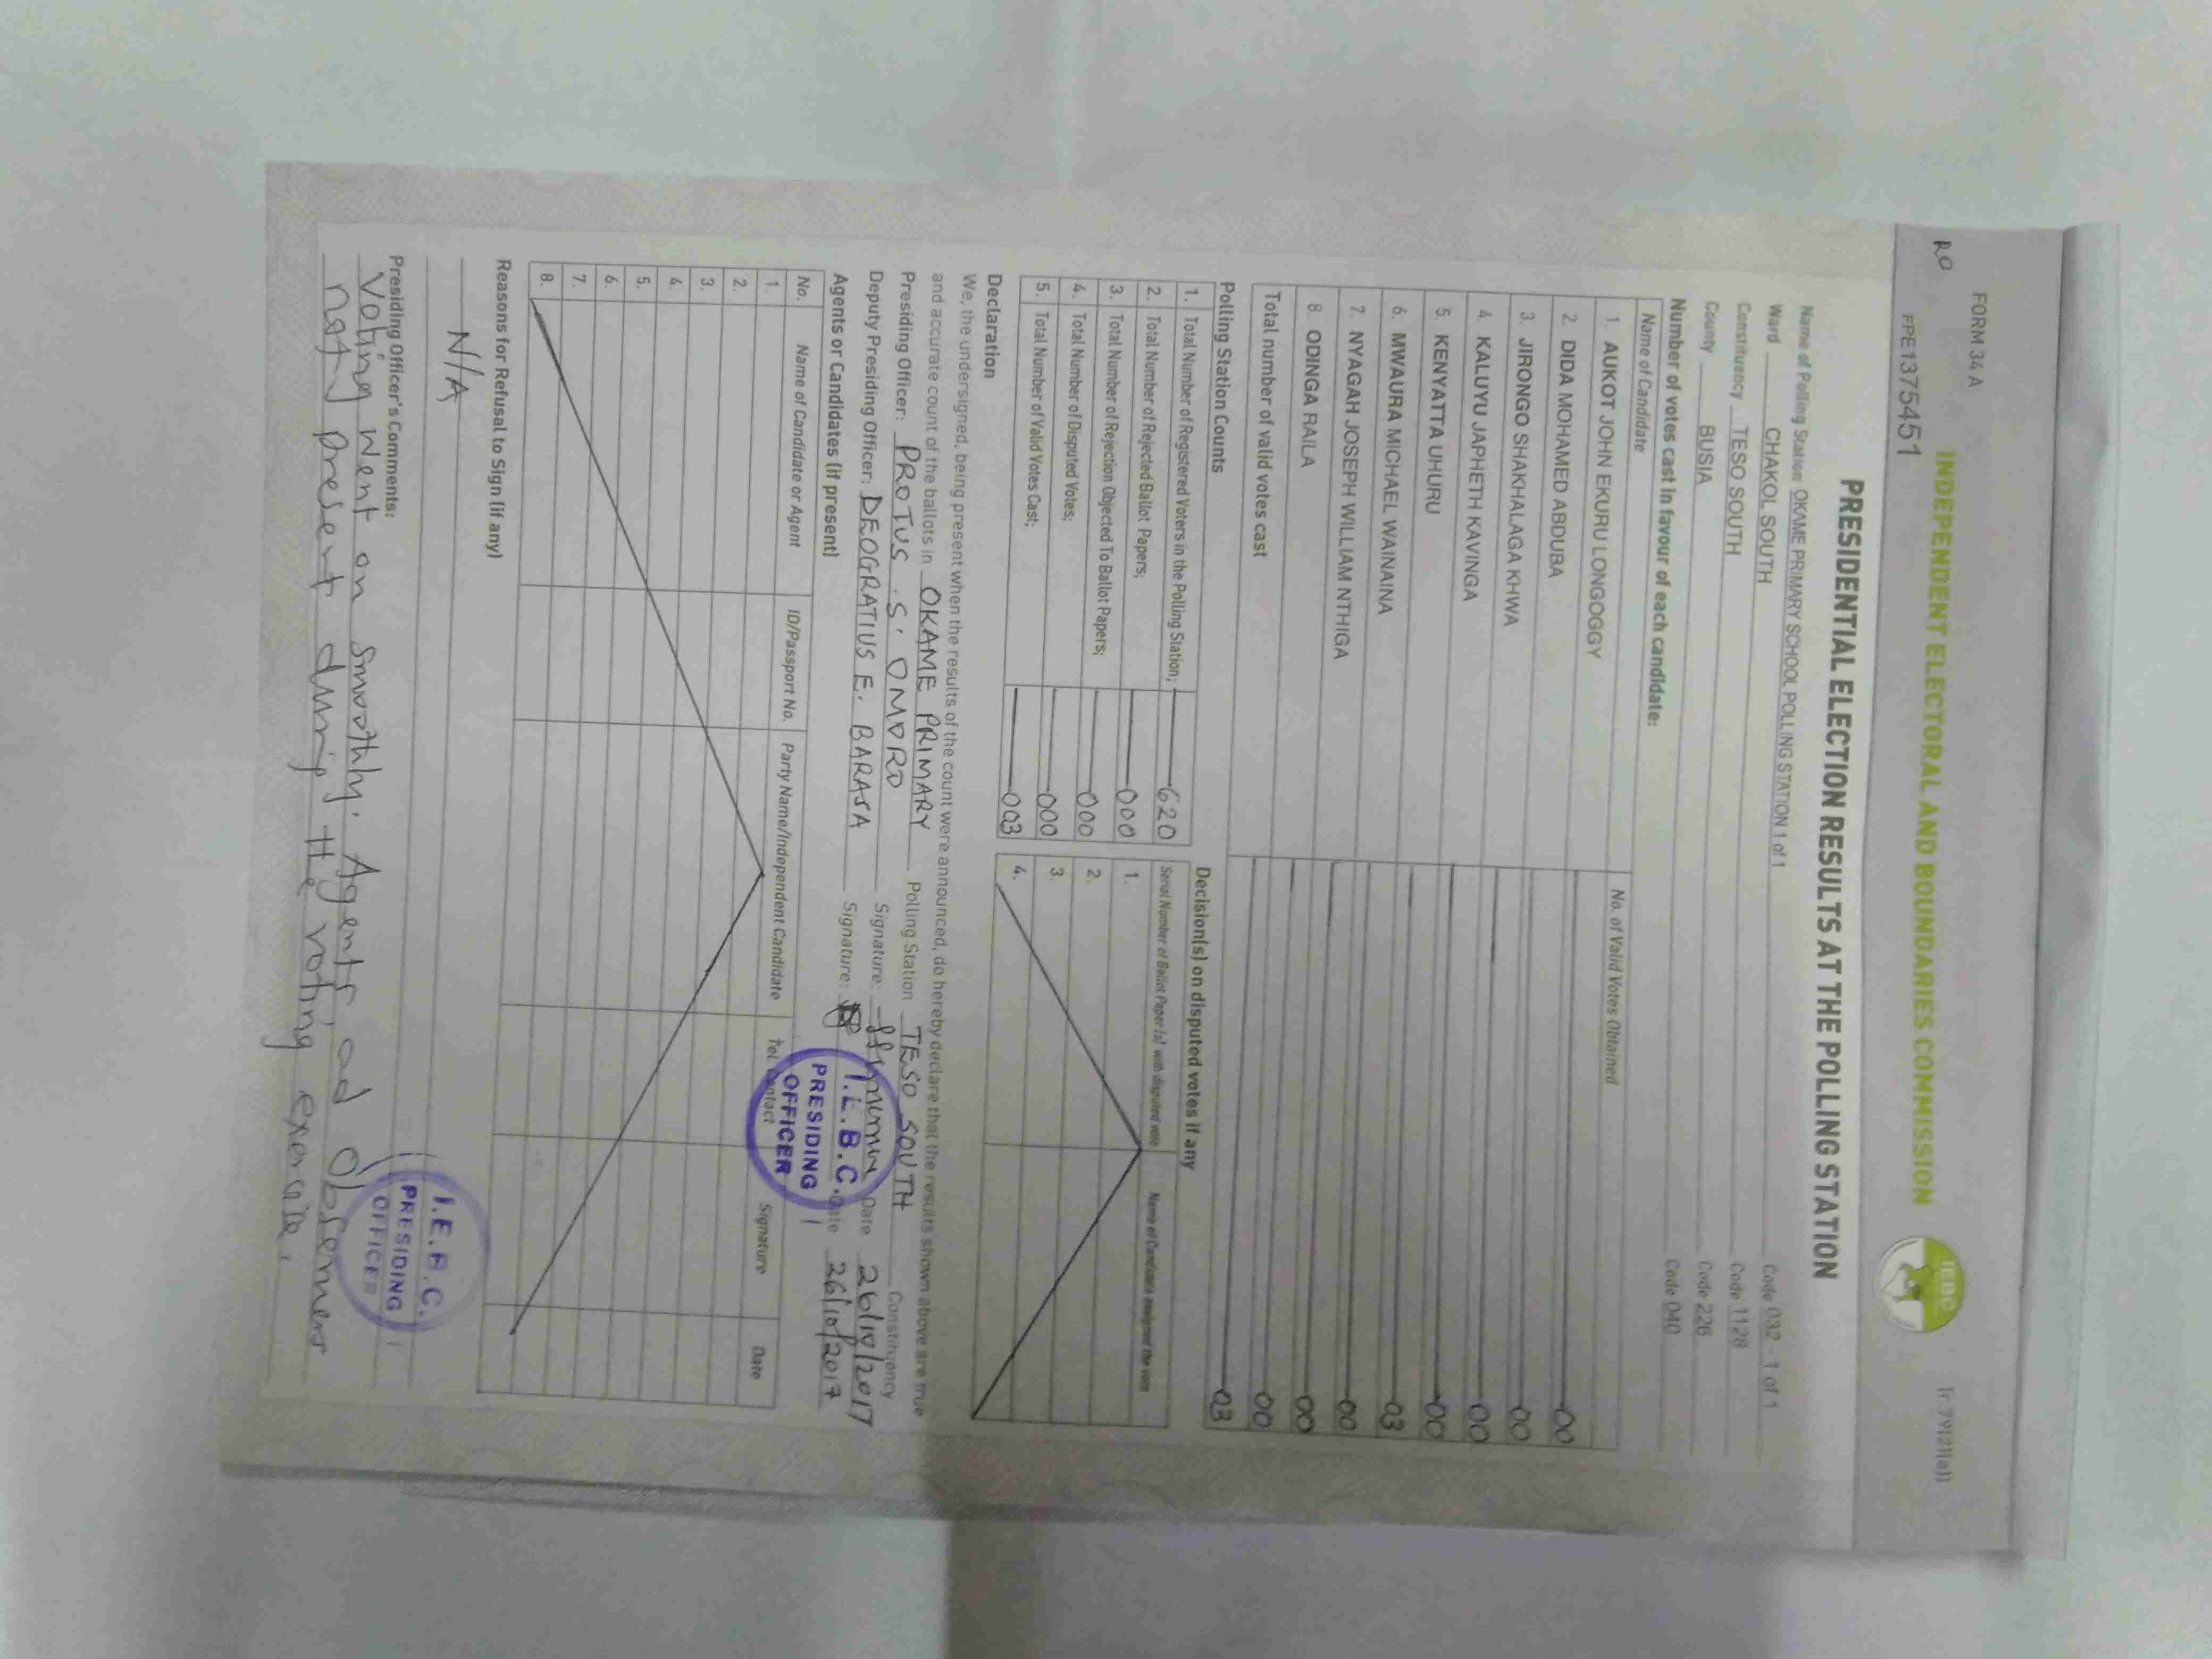 FORM 34 A
RO
FPE1375451
INDEPENDENT ELECTORAL AND BOUNDARIES COMMISSION
IEBC
PRESIDENTIAL ELECTION RESULTS AT THE POLLING STATION
Name of Polling Station OKAME PRIMARY SCHOOL POLLING STATION 1 of 1 Code 032 - 1 of 1
Ward CHAKOL SOUTH Code 1128
Constituency TESO SOUTH Code 226
County BUSIA Code 040
Number of votes cast in favour of each candidate:
Name of Candidate No. of Valid Votes Obtained
1. AUKOT JOHN EKURU LONGOGGY 00
2. DIDA MOHAMED ABDUBA 00
3. JIRONGO SHAKHALAGA KHWA 00
4. KALUYU JAPHETH KAVINGA 00
5. KENYATTA UHURU 03
6. MWAURA MICHAEL WAINAINA 00
7. NYAGAH JOSEPH WILLIAM NTHIGA 00
8. ODINGA RAILA 00
Total number of valid votes cast 03
Polling Station Counts
1. Total Number of Registered Voters in the Polling Station; 620
2. Total Number of Rejected Ballot Papers; 000
3. Total Number of Rejection Objected To Ballot Papers; 000
4. Total Number of Disputed Votes; 000
5. Total Number of Valid Votes Cast; 003
Decision(s) on disputed votes if any
Serial Number of Ballot Paper (s) with disputed vote Name of Candidate assigned the vote
1.
2.
3.
4.
Declaration
We, the undersigned, being present when the results of the count were announced, do hereby declare that the results shown above are true
and accurate count of the ballots in OKAME PRIMARY Polling Station TESO SOUTH Constituency
Presiding Officer: PROTUS .S. OMORO Signature: Date 26/10/2017
Deputy Presiding Officer: DEOGRATIUS E. BARASA Signature: Date 26/10/2017
I.E.B.C.
PRESIDING
OFFICER
Agents or Candidates (if present)
No. Name of Candidate or Agent ID/Passport No. Party Name/Independent Candidate Tel. Contact Signature Date
1.
2.
3.
4.
5.
6.
7.
8.
Reasons for Refusal to Sign (if any)
N/A
Presiding Officer's Comments:
Voting went on smoothly. Agents ad Observers
not present during the voting exercise.
I.E.B.C.
PRESIDING
OFFICER